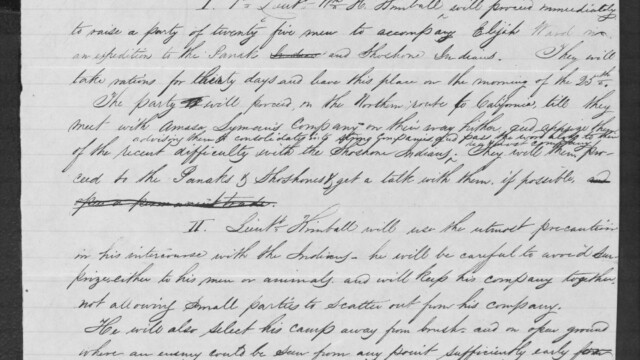 I. 1st Lieut. Wm. H. Kimball will proceed immediately
to raise a party of twenty five men to accompany Elijah Ward on
an expedition to the Panak Indian and Shoshone Indians. They will
take rations for thirty days and leave this place on the morning of the 25th.
The party will proceed, on the Northern route to California, till they
meet with Amasa Lyman's Company on their way hither and apprize them
advising them to consolidate into companies
of the recent difficulty with the Shoshone Indians; They will then pro-
ceed to the Panaks & Shoshones & get a talk with them, if possible, and
open a permanent trade.
II. Lieut. Kimball will use the utmost precaution
in his intercourse with the Indians – he will be careful to avoid sur-
prize either to his men or animals, and will keep his company together,
not allowing small parties to scatter out from his company.
He will also select his camp away from brush, and on open ground
where an enemy could be seen from any point sufficiently early for